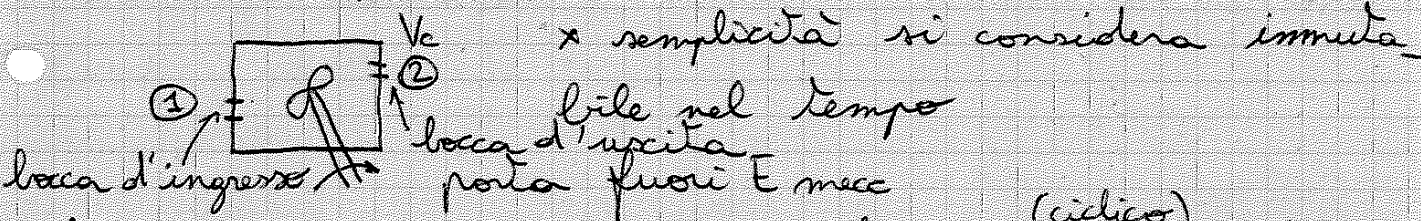 Vc × semplicità si considera immuta-
① ② bile nel tempo
bocca d'uscita
bocca d'ingresso porta fuori E mecc
(ciclico)